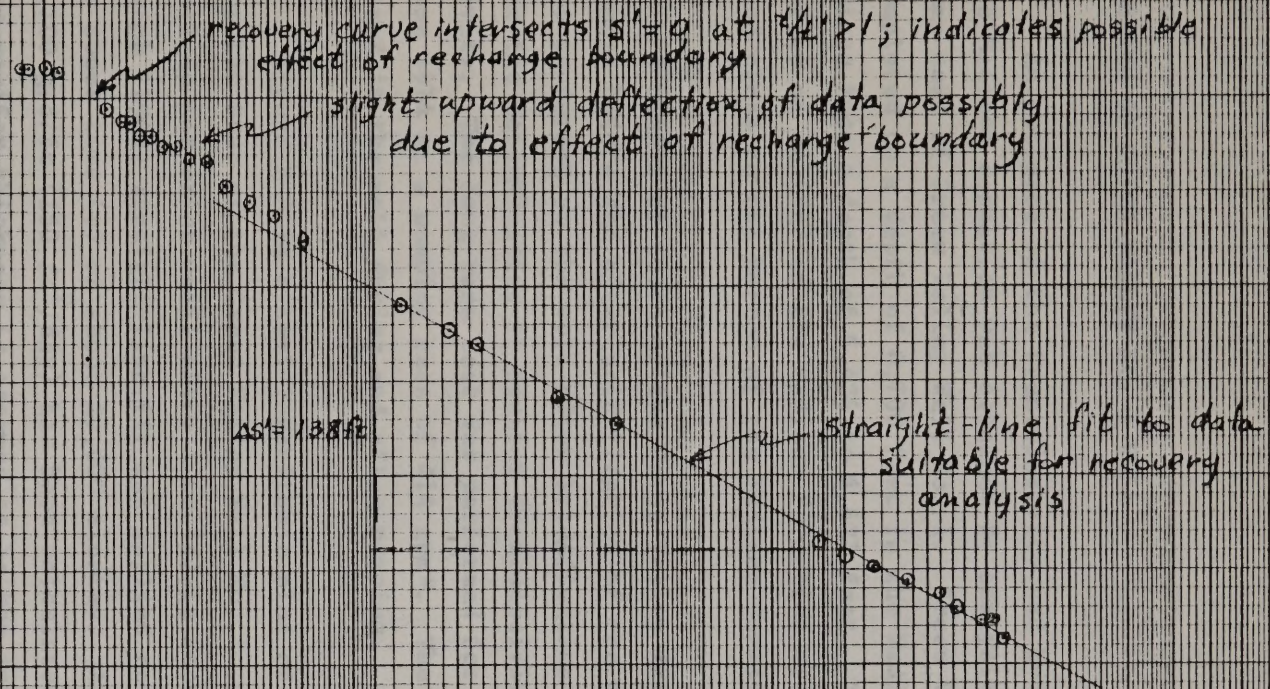 recovery curve intersects s'=0 at t/t' >1; indicates possible
effect of recharge boundary
slight upward deflection of data possibly
due to effect of recharge boundary
Δs'= 138ft
straight-line fit to data
suitable for recovery
analysis